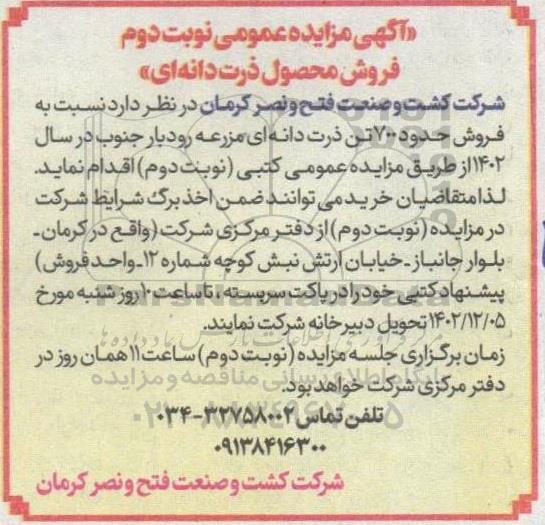 «آگهی مزایده عمومی نوبت دوم
فروش محصول ذرت دانه ای»
شرکت کشت و صنعت فتح و نصر کرمان در نظر دارد نسبت به
فروش حدود ۷۰۰ تن ذرت دانه ای مزرعه رودبار جنوب در سال
۱۴۰۲ از طریق مزایده عمومی کتبی (نوبت دوم) اقدام نماید.
لذا متقاضیان خرید می توانند ضمن اخذ برگ شرایط شرکت
در مزایده (نوبت دوم) از دفتر مرکزی شرکت (واقع در کرمان ـ
بلوار جانباز ـ خیابان ارتش نبش کوچه شماره ۱۲ـ واحد فروش)
پیشنهاد کتبی خود را در پاکت سربسته ، تا ساعت ۱۰ روز شنبه مورخ
۱۴۰۲/۱۲/۰۵ تحویل دبیرخانه شرکت نمایند.
زمان برگزاری جلسه مزایده (نوبت دوم) ساعت ۱۱ همان روز در
دفتر مرکزی شرکت خواهد بود.
تلفن تماس ۳۲۷۵۸۰۰۲-۰۳۴
۰۹۱۳۸۴۱۶۳۰۰
شرکت کشت و صنعت فتح و نصر کرمان